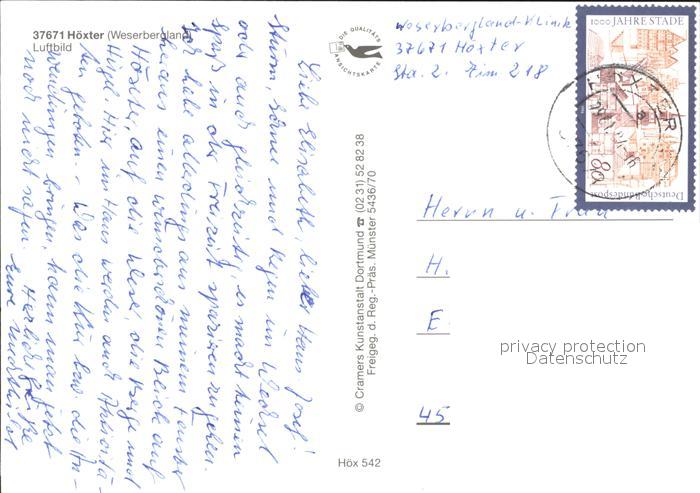 37671 Höxter (Weserbergland)
Luftbild
DIE QUALITÄTS
ANSICHTSKARTE
Weserbergland-Klinik
37671 Höxter
Sta. 2. Zim 218
1000 JAHRE STADE
80
Deutsche Bundespost
HÖXTER
Liebe Elisabeth, lieber Hans Josef!
Sturm, Sonne und Regen im Wechsel
oder auch gleichzeitig, es macht keinen
Spaß in der Freizeit spazieren zu gehen.
Ich habe allerdings aus meinem Fenster
heraus einen wunderschönen Blick auf
Höxter, auf die Weser, die Berge und
Hügel. Hier im Haus werden auch Aktivitä-
ten geboten. - Was die Kur bzw. die An-
wendungen bringen, kann man jetzt
noch nicht sagen.
Herzliche Grüße
Eure
© Cramers Kunstanstalt Dortmund ☎ (02 31) 52 82 38
Freigeg. d. Reg.-Präs. Münster 5436/70
Herrn u. Frau
H.
E
45
privacy protection
Datenschutz
Höx 542